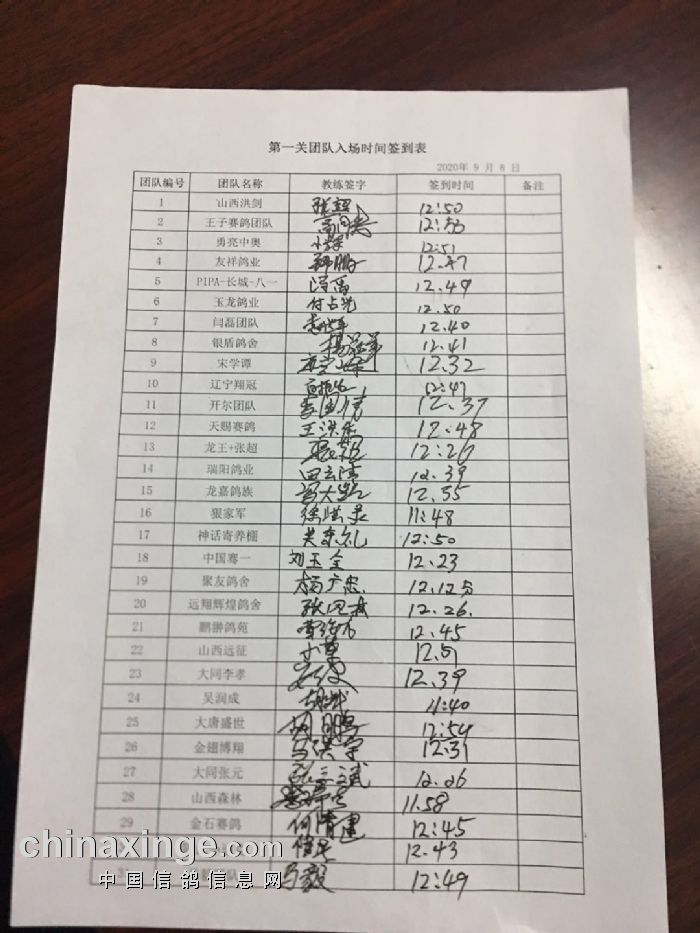 第一关团队入场时间签到表
2020年 9 月 8 日
团队编号 团队名称 教练签字 签到时间 备注
1 山西洪剑 张超 12:50
2 王子赛鸽团队 12:53
3 勇亮中奥 12:51
4 友祥鸽业 12.47
5 PIPA-长城-八一 冯高 12.49
6 玉龙鸽业 付占先 12.50
7 闫磊团队 12.40
8 银盾鸽舍 12.41
9 宋学谭 12.32
10 辽宁翔冠 12:47
11 开尔团队 李国倩 12.37
12 天赐赛鸽 王洪香 12:48
13 龙王+张超 12:26
14 瑞阳鸽业 田云清 12.39
15 龙嘉鸽族 12.35
16 狠家军 徐洪录 11:48
17 神话寄养棚 关东礼 12:50
18 中国骞一 刘玉全 12.23
19 聚友鸽舍 杨广忠 12.125
20 远翔辉煌鸽舍 12.26.
21 鹏翀鸽苑 12.45
22 山西远征 12.51
23 大同李孝 12.39
24 吴润成 11:40
25 大唐盛世 胡鹏 12:54
26 金翅博翔 马洪宇 12.31
27 大同张元 12.26
28 山西森林 11.58
29 金石赛鸽 何清建 12:45
12.43
马毅 12:49
chinaxinge.com
中国信鸽信息网